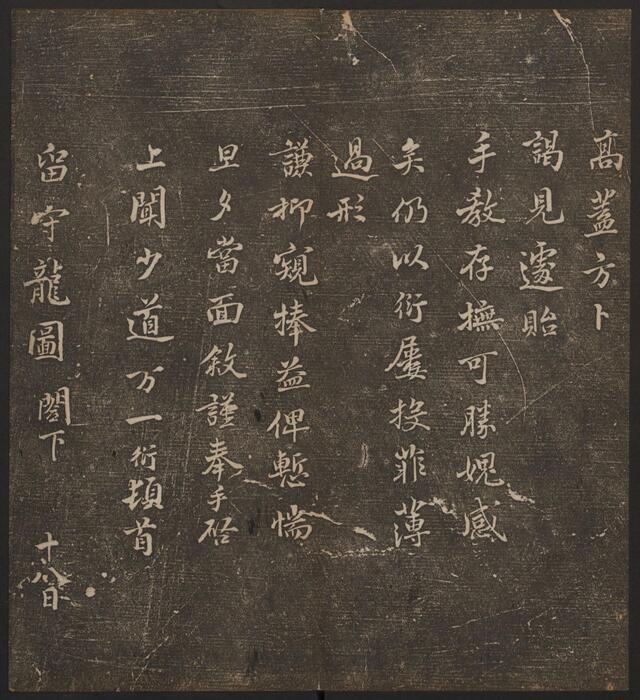 高蓋方卜
謁見遽貽
手教存撫可勝媿感
矣仍以衍屢投菲薄
過形
謙抑窺捧益俾慙惴
旦夕當面敘謹奉手啓
上聞少道万一衍頓首
留守龍圖閣下
十八日